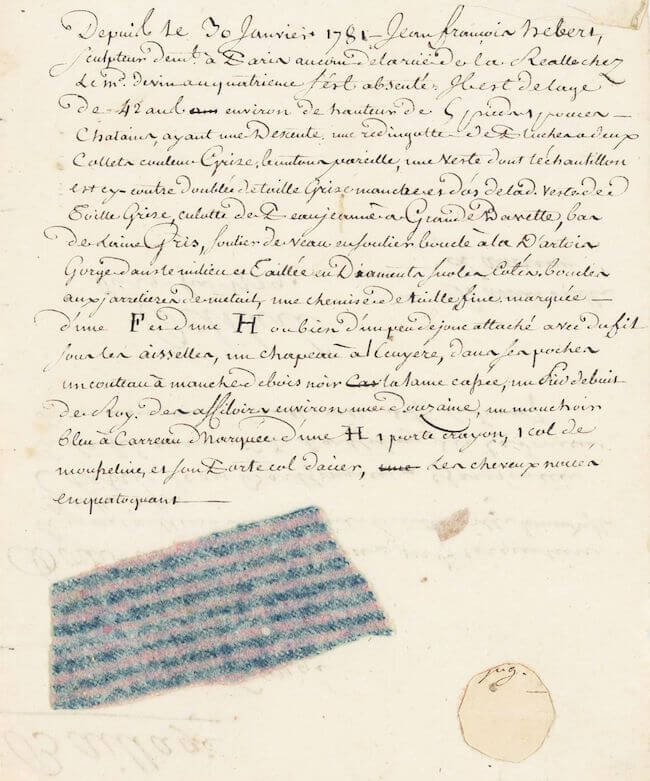 Depuis le 30 Janvier 1781 – Jean françois hebert,
sculpteur demt. a Paris au coin de la rüe de la Realle chez
Le md. de vin au quatrieme s'est absenté, Il est de lage
de 42 ans environ de hauteur de 5 pieds 1 pouces –
Chatains, ayant une Descente, une redingotte de Pluches a deux
Collets couleur Grize, boutons pareille, une Veste dont l'échantillon
est cy contre doublée de toille Grise manches et dos de lad. Veste de
Toille Grise, culotte de Peau jeaune a Grande Bavette, bas
de Laine Gris, soulier de veau en soulier bouclé à la Dartois
Gorge dans le milieu et Taillée en Diaments sur les Cotés, boucles
aux jarretieres de metail, une chemise de toille fine marquée –
d'une F et d'une H ou bien d'un peu de jonc attaché avec du fil
sous les aisselles, un chapeau à l'Ecuyere, dans ses poches
un couteau à manche de bois noir la lame cassée, un Pied de buit
de Roy. des affiloirs environ une Douzaine, un mouchoir
bleu à Carreau Marquée d'une H 1 porte crayon, 1 col de
mousseline, et son Porte col d'acier, Les cheveux nouées
en quatoquant –